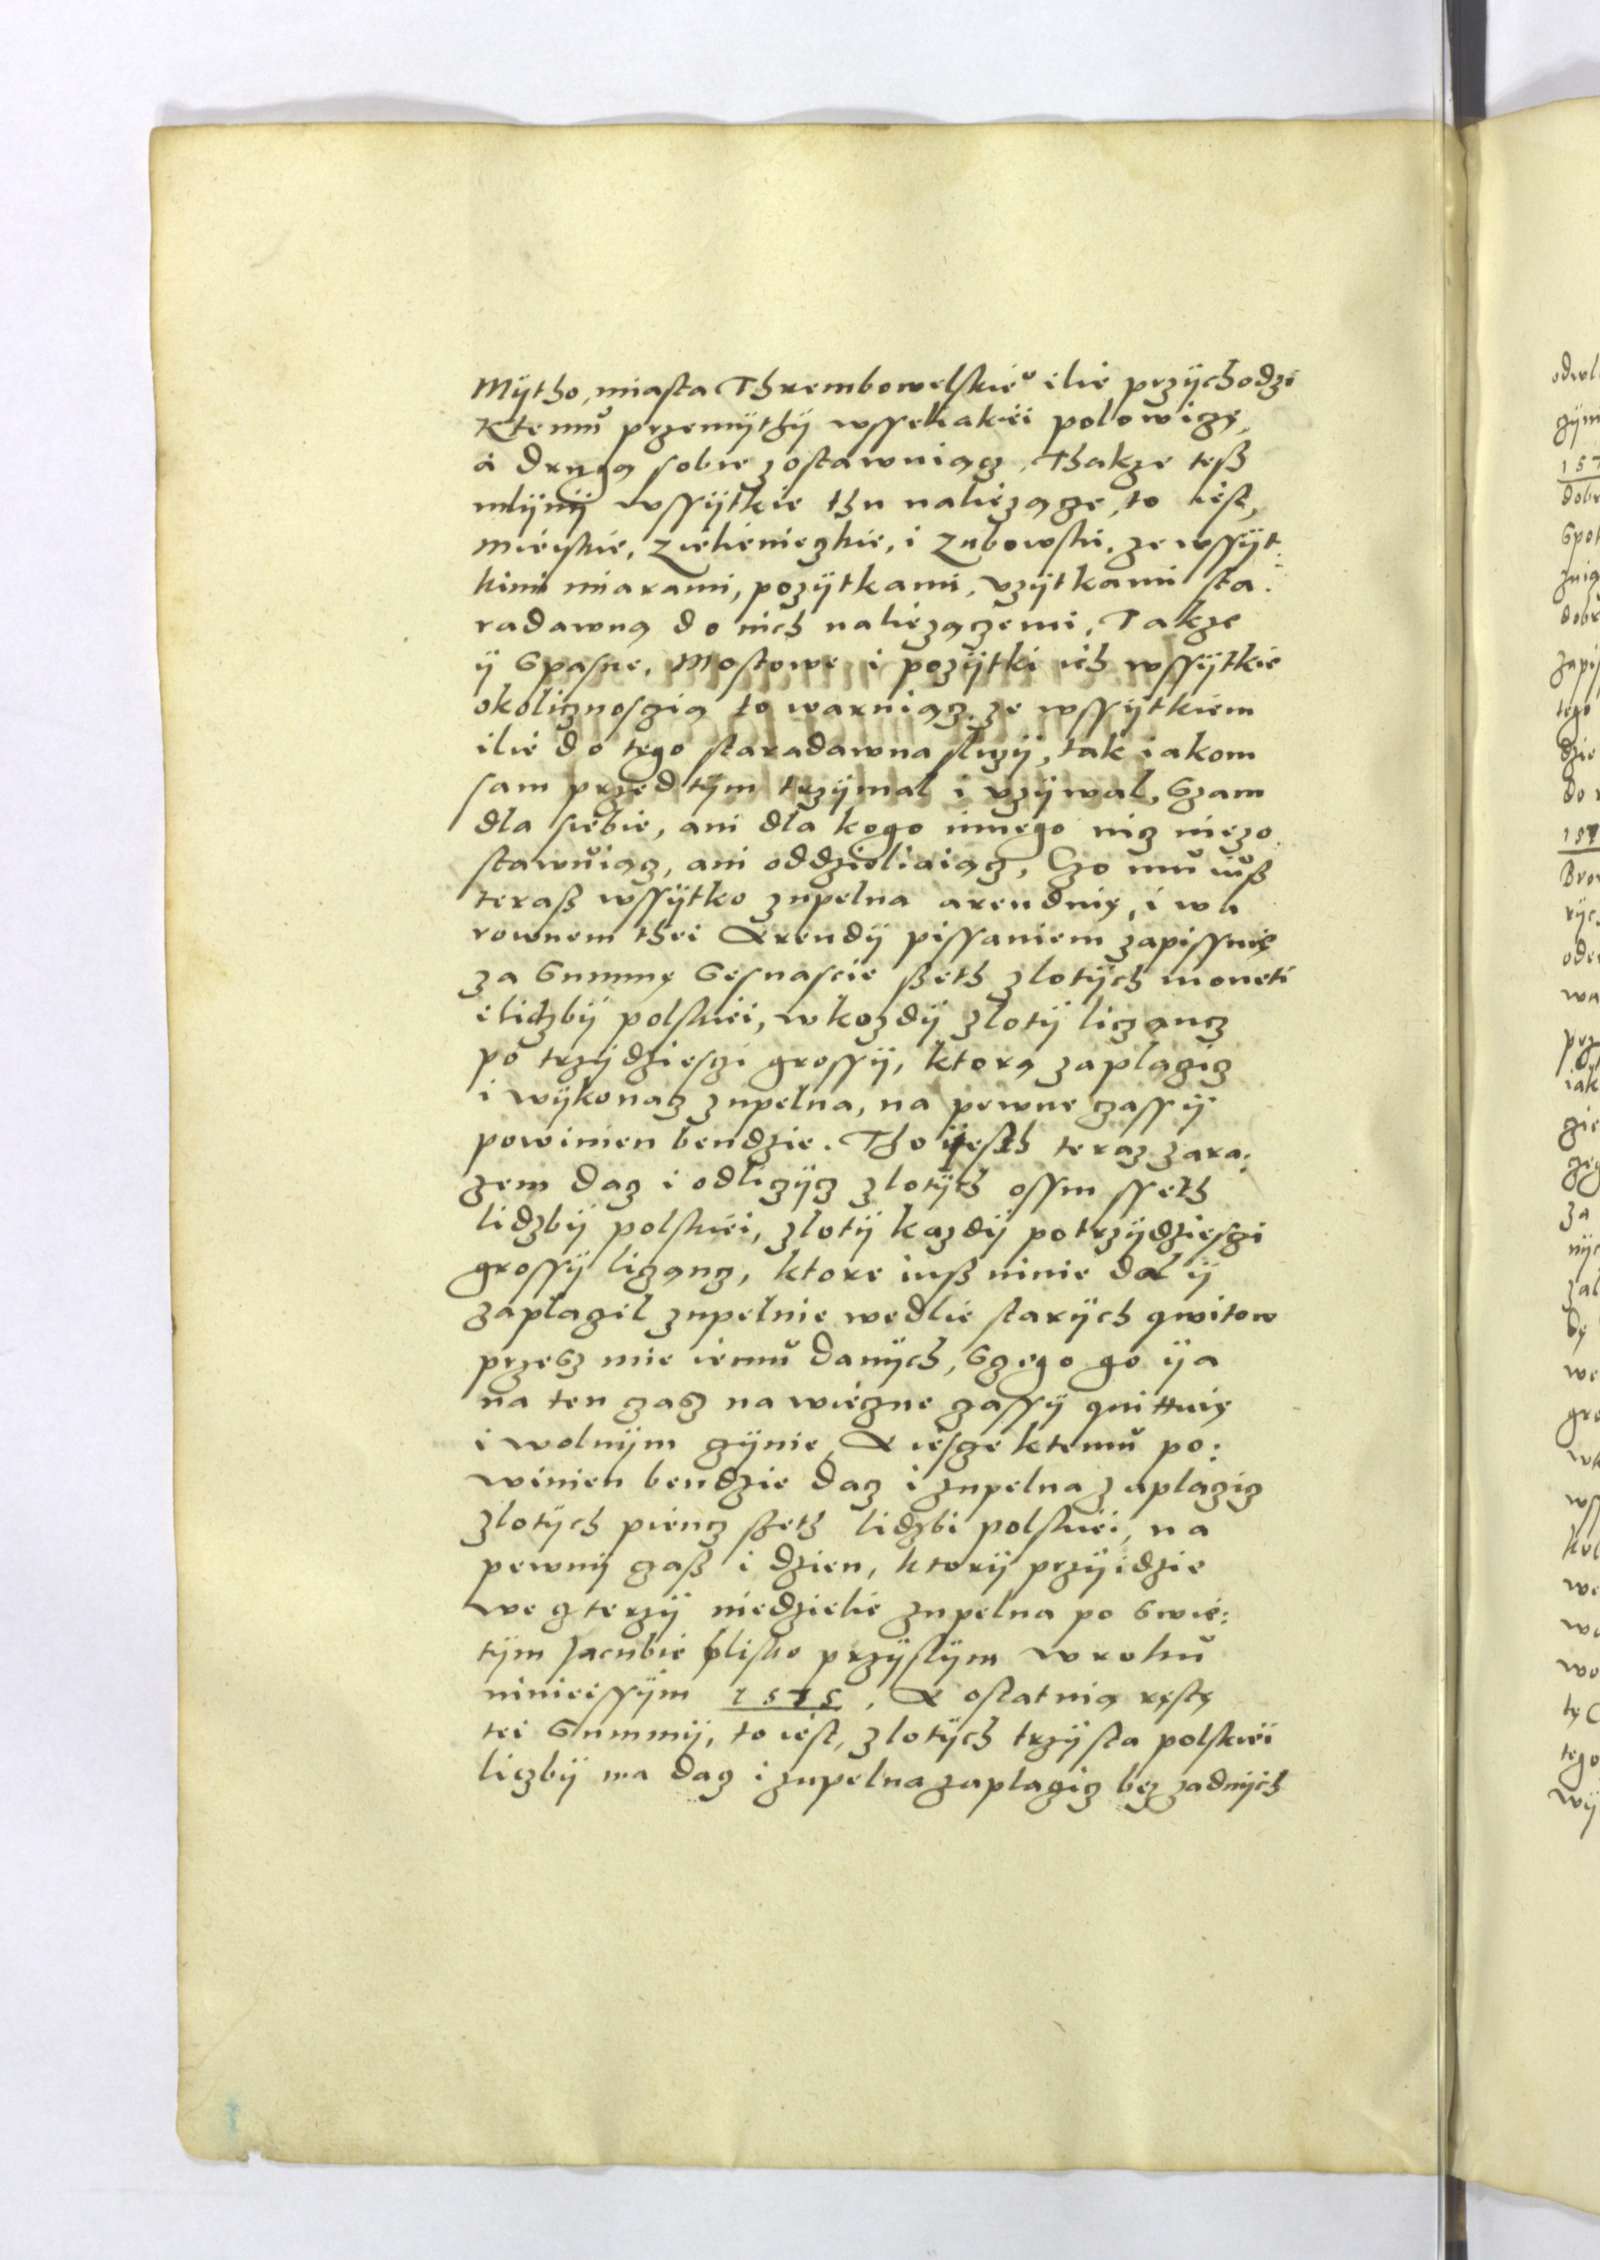 Mÿtho, miasta Thrembowelskieº ilie przÿchodzi
Ktemŭ przemÿthÿ wsseliakiei polowiczę,
à drugą sobie zostawuiącz, Thakze teß
mlÿnÿ wssÿtkie thu naliezącze, to iest,
Mieiskie, Zielienieczkie, i Zubowski, ze wssÿt:
kimi miarami, pozÿtkami, vzÿtkami sta:
radawną do nich naliezączemi, Takze
ÿ Spasne, Mostowe i pozÿtki ich wssÿtkie
okolicznosczią to waruiącz, ze wssÿtkiem
ilie do tego staradawna sluzÿ, tak iakom
sam przed tÿm trzÿmal i vzÿwal, Szam
dla siebie, ani dla kogo innego nicz niezo:
stawŭiącz, ani oddzieliaiącz, Czo mŭ iuß
teraß wssÿtko zupelna arenduię, i wa
rownem thei Arendÿ pissaniem zapissuię
za Summę Sesnascie ßeth zlotÿch moneti
i lidzbÿ polskiei, w kozdÿ zlotÿ liczancz
po trzÿdziesczi grossÿ, ktorą zaplaczicz
i wÿkonacz zupelna, na pewne czassÿ
powinien bendzie. Tho iesth teraz zara:
zem dacz i odliczÿcz zlotÿch ossm sseth
lidzbÿ polskiei, zlotÿ kazdÿ po trzÿdziesczi
grossÿ licząncz, ktore iuß ninie dal ÿ
zaplaczil zupelnie wedlie starÿch qwitow
przesz mie iemŭ danÿch, Sczego go ÿa
na ten czasz na wieczne czassÿ quittuię
i wolnÿm czÿnie, A iescze ktemŭ po:
winien bendzie dacz i zupelna zaplaczicz
zlotÿch piencz szeth lidzbi polskiei, na
pewnÿ czaß i dzien, ktorÿ przÿidzie
we czterzÿ niedzielie zupelna po Swie:
tÿm Jacubie blisko przÿslÿm w roku
ninieissÿm 1575. A ostatnią restę
tei Summÿ, to iest, zlotÿch trzÿsta polskiei
liczbÿ ma dacz i zupelna zaplaczicz bez zadnÿch